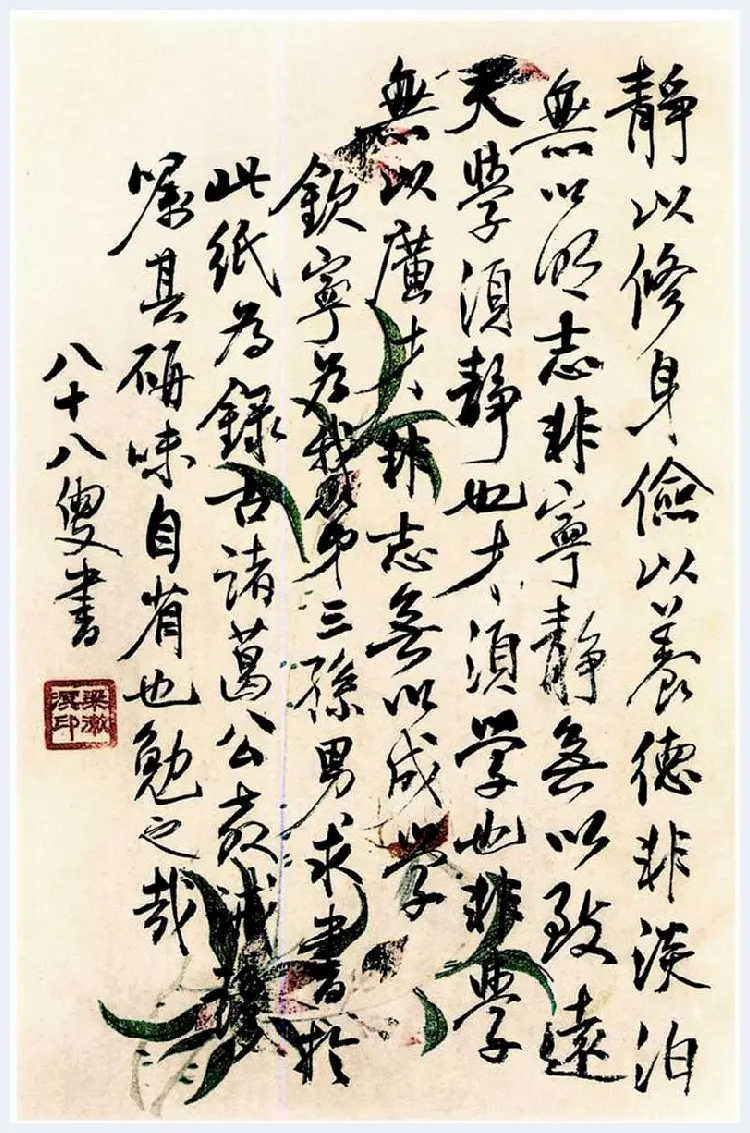 靜以修身儉以养德非淡泊
無以明志非寧靜無以致遠
夫學須靜也才須学也非學
無以廣才非志無以成学
欽寧为我第三孫男求書於
此紙为錄古诸葛公教诫
嘱其研味自省也勉之哉
八十八叟書
梁漱溟印